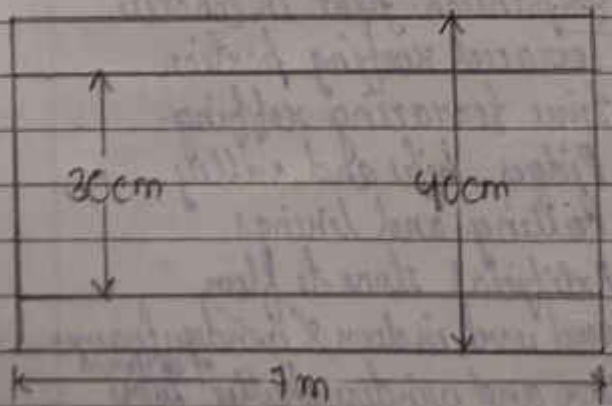 30cm 40cm
7m